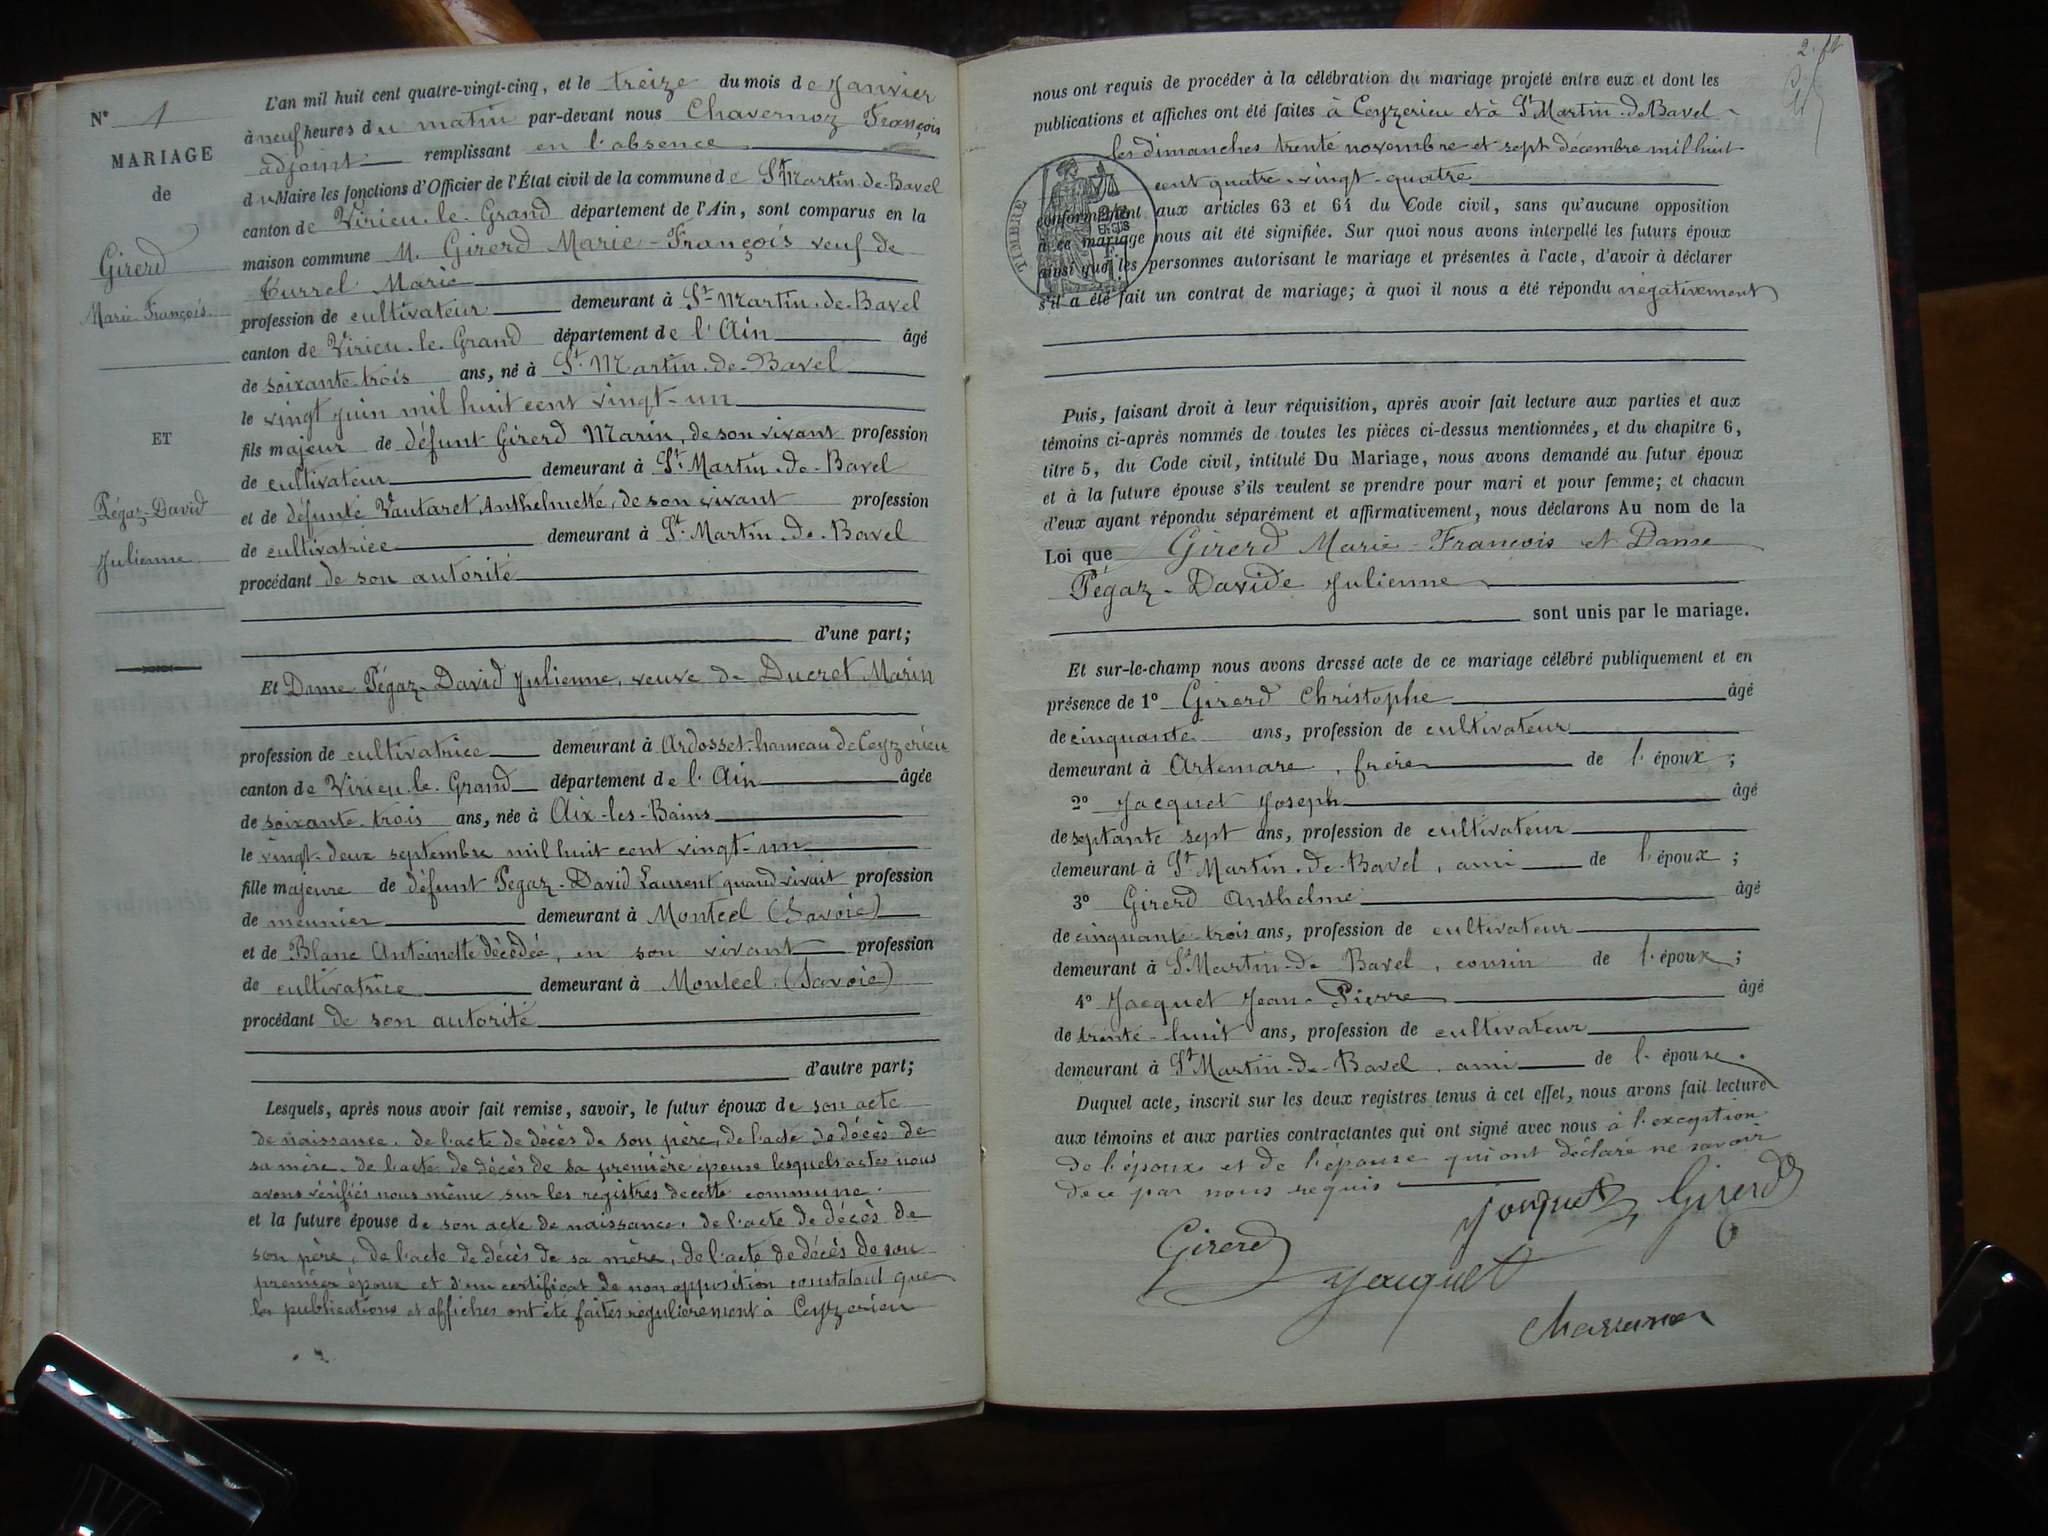 N° 1
MARIAGE
de
Girerd
Marie François
ET
Pégaz-David
Julienne
L'an mil huit cent quatre-vingt-cinq, et le treize du mois de Janvier
à neuf heures du matin par-devant nous Chavernoz François
adjoint remplissant en l'absence
du Maire les fonctions d'Officier de l'État civil de la commune de St Martin-de-Bavel
canton de Virieu-le-Grand département de l'Ain, sont comparus en la
maison commune M. Girerd Marie-François veuf de
Turrel Marie
profession de cultivateur demeurant à St-Martin-de-Bavel
canton de Virieu-le-Grand département de l'Ain âgé
de soixante-trois ans, né à St-Martin-de-Bavel
le vingt juin mil huit cent vingt-un
fils majeur de défunt Girerd Marin, de son vivant profession
de cultivateur demeurant à St-Martin-de-Bavel
et de défunte Vautaret Anthelmette, de son vivant profession
de cultivatrice demeurant à St-Martin-de-Bavel
procédant de son autorité
d'une part;
Et Dame Pégaz-David Julienne, veuve de Ducret Marin
profession de cultivatrice demeurant à Ardosset-hameau de Ceyzerieu
canton de Virieu-le-Grand département de l'Ain âgée
de soixante-trois ans, née à Aix-les-Bains
le vingt-deux septembre mil huit cent vingt-un
fille majeure de défunt Pegaz-David Laurent quand vivait profession
de meunier demeurant à Montcel (Savoie)
et de Blanc Antoinette décédée, en son vivant profession
de cultivatrice demeurant à Montcel (Savoie)
procédant de son autorité
d'autre part;
Lesquels, après nous avoir fait remise, savoir, le futur époux de son acte
de naissance, de l'acte de décès de son père, de l'acte de décès de
sa mère, de l'acte de décès de sa première épouse lesquels actes nous
avons vérifiés nous même sur les registres de cette commune.
et la future épouse de son acte de naissance, de l'acte de décès de
son père, de l'acte de décès de sa mère, de l'acte de décès de son
premier époux et d'un certificat de non opposition constatant que
les publications et affiches ont été faites régulièrement à Ceyzerieu
nous ont requis de procéder à la célébration du mariage projeté entre eux et dont les
publications et affiches ont été faites à Ceyzerieu et à St Martin-de-Bavel
les dimanches trente novembre et sept décembre mil huit
cent quatre-vingt-quatre
TIMBRE
conformément aux articles 63 et 64 du Code civil, sans qu'aucune opposition
à ce mariage nous ait été signifiée. Sur quoi nous avons interpellé les futurs époux
ainsi que les personnes autorisant le mariage et présentes à l'acte, d'avoir à déclarer
s'il a été fait un contrat de mariage; à quoi il nous a été répondu négativement
Puis, faisant droit à leur réquisition, après avoir fait lecture aux parties et aux
témoins ci-après nommés de toutes les pièces ci-dessus mentionnées, et du chapitre 6,
titre 5, du Code civil, intitulé Du Mariage, nous avons demandé au futur époux
et à la future épouse s'ils veulent se prendre pour mari et pour femme; et chacun
d'eux ayant répondu séparément et affirmativement, nous déclarons Au nom de la
Loi que Girerd Marie-François et Dame
Pégaz-Davide Julienne
sont unis par le mariage.
Et sur-le-champ nous avons dressé acte de ce mariage célébré publiquement et en
présence de 1° Girerd Christophe âgé
de cinquante ans, profession de cultivateur
demeurant à Artemare, frère de l'époux;
2° Jacquet Joseph âgé
de septante sept ans, profession de cultivateur
demeurant à St Martin-de-Bavel, ami de l'époux;
3° Girerd Anthelme âgé
de cinquante-trois ans, profession de cultivateur
demeurant à St Martin-de Bavel, cousin de l'époux;
4° Jacquet Jean-Pierre âgé
de trente-huit ans, profession de cultivateur
demeurant à St Martin-de-Bavel, ami de l'épouse.
Duquel acte, inscrit sur les deux registres tenus à cet effet, nous avons fait lecture
aux témoins et aux parties contractantes qui ont signé avec nous à l'exception
de l'époux et de l'épouse qui ont déclaré ne savoir
de ce par nous requis
Jacquet Girerd
Girerd
Jacquet